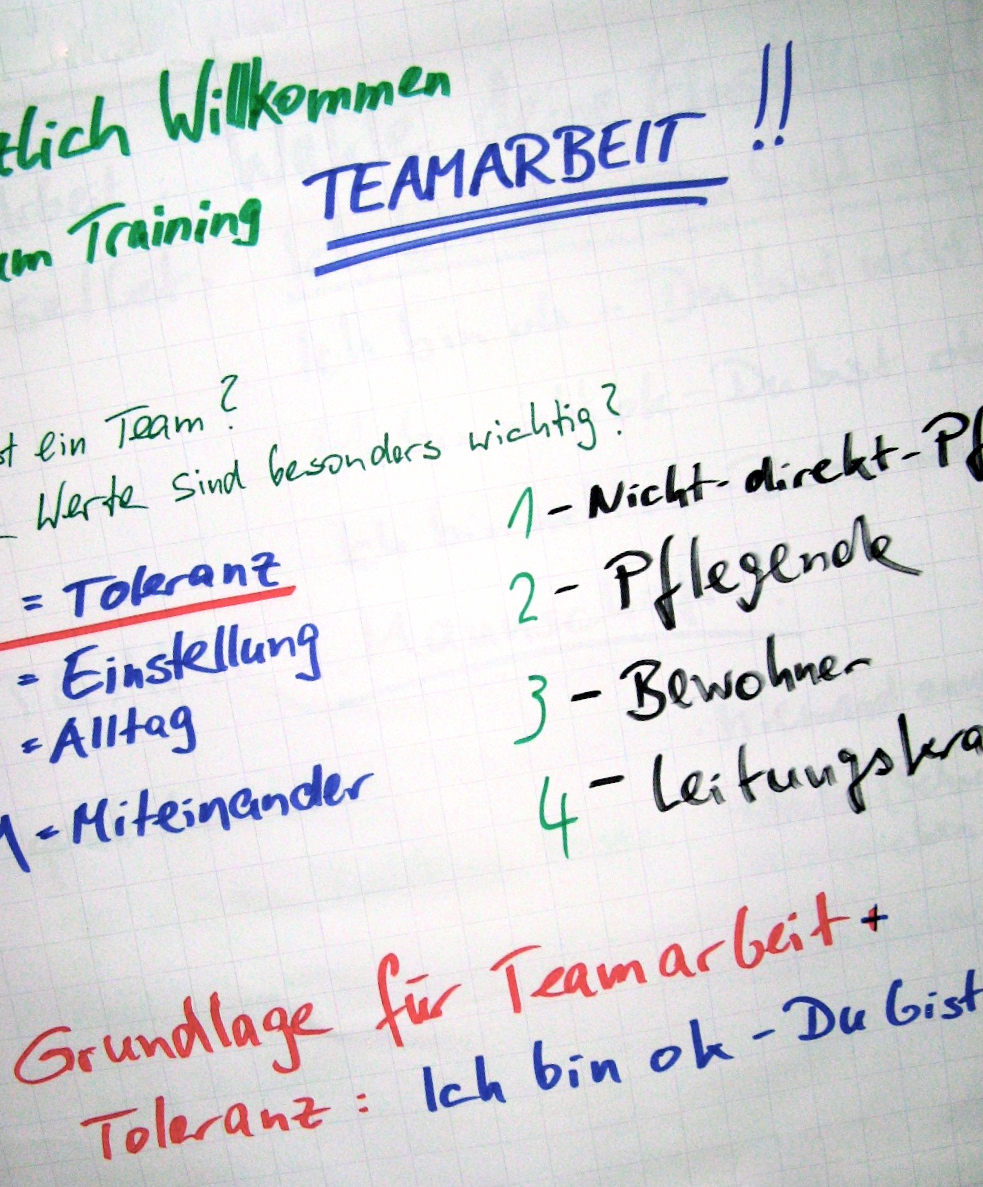 tlich Willkommen
um Training TEAMARBEIT !!
st ein Team?
Werte sind besonders wichtig?
= Toleranz
= Einstellung
= Alltag
1 = Miteinander
1 - Nicht-direkt-Pf
2 - Pflegende
3 - Bewohner
4 - Leitungskra
Grundlage für Teamarbeit +
Toleranz: Ich bin ok - Du bist